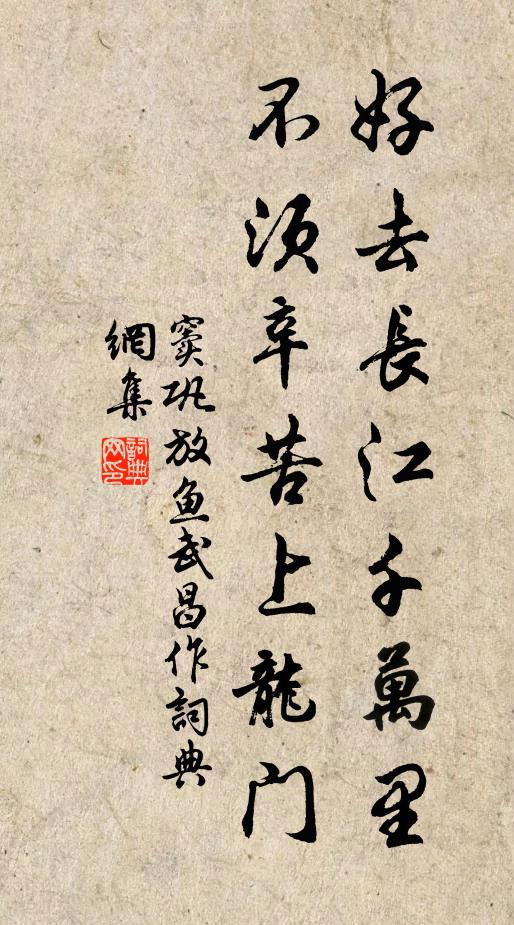 好去長江千萬里
不須辛苦上龍门
竇巩放鱼武昌作詞典
網集
詞典
网印